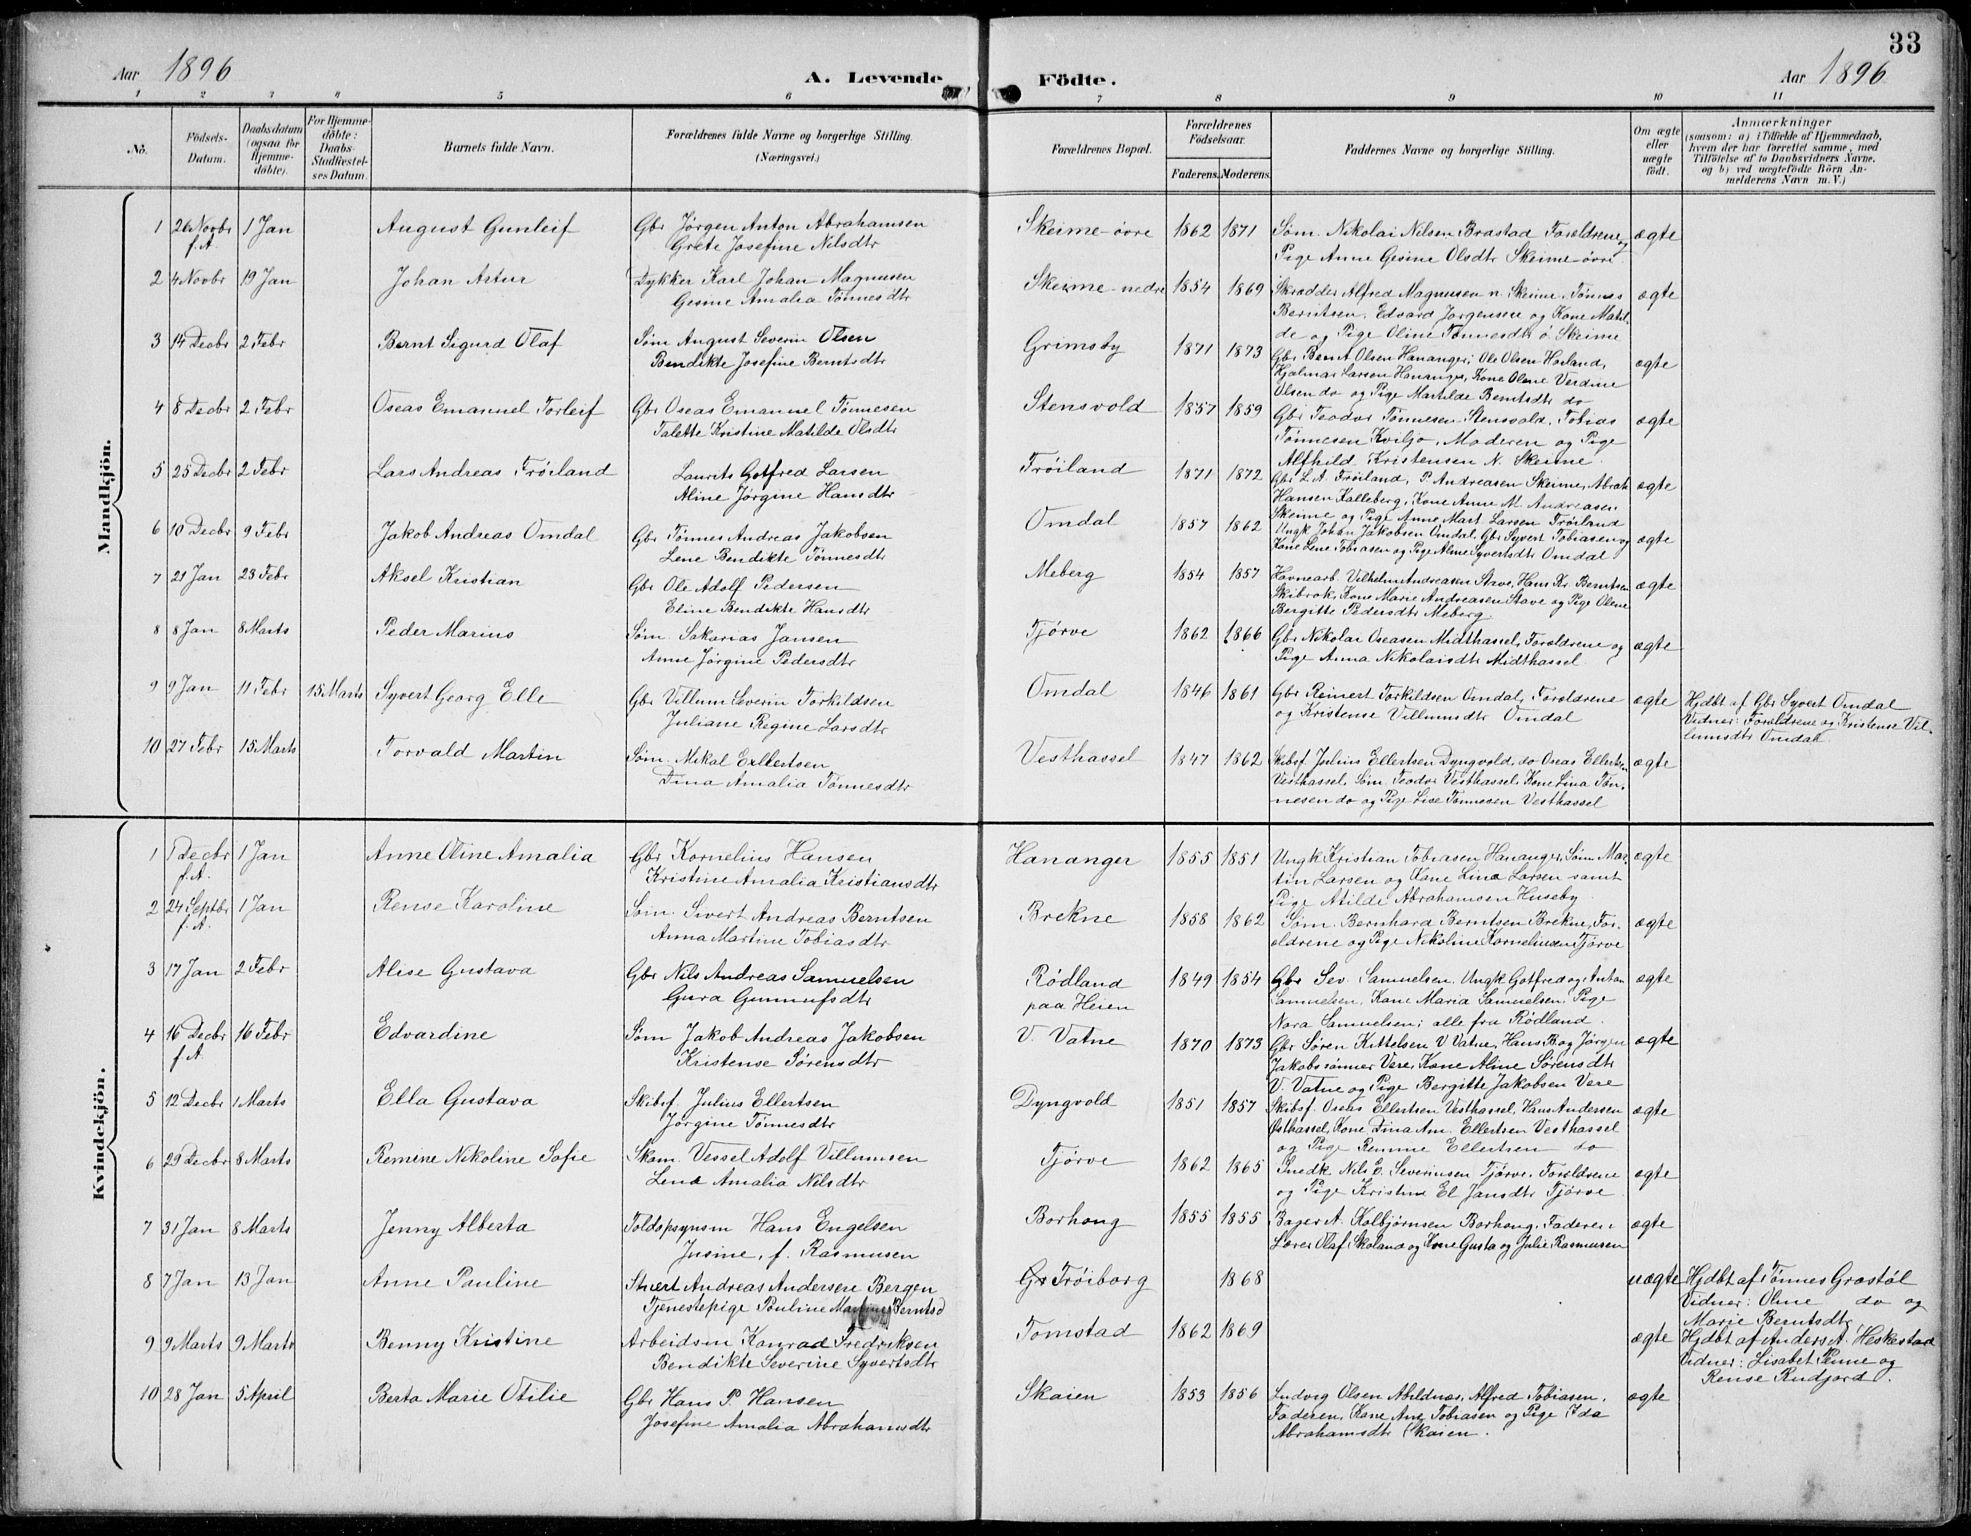 33
Aar 1896 A. Levende Födte. Aar 1896
1 2 3 4 5 6 7 8 9 10 11
No. Födsels-Datum. Daabsdatum (ogsaa for Hjemme-döbte). For Hjemme-döbte: Daabs-Stadfæstel-ses Datum. Barnets fulde Navn. Forældrenes fulde Navne og borgerlige Stilling. (Næringsvei.) Forældrenes Bopæl. Forældrenes Födselsaar. Faderens. Moderens. Faddernes Navne og borgerlige Stilling. Om ægte eller uægte födt. Anmærkninger (saasom: a) i Tilfælde af Hjemmedaab, hvem der har forrettet samme, med Tilföielse af to Daabsvidners Navne, og b) ved uægtefödte Börn An-melderens Navn m. V.)
Mandkjön.
1 26 Novbr f.A. 1 Jan August Gunleif Gbr Jørgen Anton Abrahamsen Skeime-övre 1862 1871 Søm. Nikolai Nilsen Brastad Forældrene og ægte
Grete Josefine Nilsdtr Pige Anne Gesine Olsdtr Skeime-övre
2 4 Novbr 19 Jan Johan Artur Dykker Karl Johan Magnusen Skeime-nedre 1854 1869 Skrædder Alfred Magnusen n. Skeime, Tønnes ægte
Gesine Amalia Tønnesdtr Berntsen, Edvard Jørgensen og Kone Matil-
de og Pige Oline Tønnesdtr ö. Skeime
3 14 Decbr 2 Febr Bernt Sigurd Olaf Søm August Severin Olsen Grimsby 1871 1873 Gbr Bernt Olsen Hananger, Ole Olsen Hauland, ægte
Bendikte Josefine Berntsdtr Hjalmar Larsen Hananger, Kone Oline Verdine
Olsen do og Pige Martilde Berntsdtr do
4 8 Decbr 2 Febr Oseas Emanuel Torleif Gbr Oseas Emanuel Tønnesen Stensvold 1857 1859 Gbr Teodor Tønnesen Stensvold, Tobias ægte
Talette Kristine Matilde Olsdtr Tønnesen Kviljo, Moderen og Pige
Alfhild Kristensen N. Skeime.
5 25 Decbr 2 Febr Lars Andreas Trøiland Laurits Gotfred Larsen Trøiland 1871 1872 Gbr L.A. Trøiland, P. Andreasen Skeime, Abrah ægte
Aline Jørgine Hansdtr Hansen Kalleberg, Kone Anne M. Andreasen
Skeime og Pige Anne Mart. Larsen Trøiland
6 10 Decbr 9 Febr Jakob Andreas Omdal Gbr Tønnes Andreas Jakobsen Omdal 1857 1862 Ungk Johan Jakobsen Omdal, Gbr Syvert Tobiasen og ægte
Lene Bendikte Tønnesdtr Kone Lene Tobiasen og Pige Aline Syvertsdtr Omdal
7 21 Jan 23 Febr Aksel Kristian Gbr Ole Adolf Pedersen Meberg 1854 1857 Havnearb. Vilhelm Andreasen Stave, Hans Kr. Berntsen ægte
Eline Bendikte Hansdtr Skibrok, Kone Marie Andreasen Stave og Pige Olene
Bergitte Pedersdtr Meberg
8 8 Jan 8 Marts Peder Marius Søm. Sakarias Jansen Tjørve 1862 1866 Gbr Nikolai Oseasen Midthassel, Forældrene og ægte
Anne Jørgine Pedersdtr Pige Anna Nikolaisdtr Midthassel
9 9 Jan 11 Febr 15 Marts Syvert Georg Elle Gbr Villum Severin Torkildsen Omdal 1846 1861 Gbr Reinert Torkildsen Omdal, Forældrene ægte Hjdbt af Gbr Syvert Omdal
Juliane Regine Larsdtr og Kristense Villumsdtr Omdal Vidner: Forældrene og Kristense Vil-
lumsdtr Omdal.
10 27 Febr 15 Marts Torvald Martin Søm. Mikal Ellertsen Vesthassel 1847 1862 Skibsf. Julius Ellertsen Dyngvold, do Oseas Ellertsen ægte
Dina Amalia Tønnesdtr Vesthassel, Søm. Teodor Vesthassel, Kone Lina Tøn-
nesen do og Pige Lise Tønnesen Vesthassel
Kvindekjön.
1 1 Decbr f.A. 1 Jan Anne Oline Amalia Gbr Kornelius Hansen Hananger 1855 1851 Ungk Kristian Tobiasen Hananger, Søm Mar- ægte
Kristine Amalia Kristiansdtr tin Larsen og Kone Lina Larsen samt
Pige Atilde Abrahamsen Huseby
2 24 Septbr f.A. 1 Jan Rense Karoline Søm. Sivert Andreas Berntsen Brekne 1858 1862 Søm. Bernhard Berntsen Brekne, For- ægte
Anna Martine Tobiasdtr ældrene og Pige Nikoline Korneliusen Tjørve
3 17 Jan 2 Febr Alise Gustava Gbr Nils Andreas Samuelsen Rødland 1849 1854 Gbr Sev. Samuelsen, Ungk Gotfred og Anton ægte
Gura Gunnufsdtr paa Heien Samuelsen, Kone Maria Samuelsen, Pige
Nora Samuelsen; alle fra Rødland.
4 16 Decbr f.A. 16 Febr Edvardine Søm Jakob Andreas Jakobsen V. Vatne 1870 1873 Gbr Søren Kittelsen V Vatne, Hans B og Jörgen ægte
Kristense Sørensdtr Jakobssønner Vere, Kone Aline Sørensdtr
V. Vatne og Pige Bergitte Jakobsen Vere
5 12 Decbr 1 Marts Ella Gustava Skibsf. Julius Ellertsen Dyngvold 1851 1857 Skibsf. Oseas Ellertsen Vesthassel, Hans Andersen ægte
Jørgine Tønnesdtr Østhassel, Kone Dina Am. Ellertsen Vesthassel
og Pige Remme Ellertsen do
6 29 Decbr 8 Marts Remine Nikoline Sofie Skom. Vessel Adolf Villumsen Tjørve 1862 1865 Snedk. Nils E. Severinsen Tjørve, Forældrene ægte
Lena Amalia Nilsdtr og Pige Kristine El. Jansdtr Tjørve
7 31 Jan 8 Marts Jenny Alberta Toldopsynsm Hans Engelsen Borhaug 1855 1855 Bager A. Kolbjørnsen Borhaug, Faderen, ægte
Jusine, f. Rasmusen Lærer Olaf Skoland og Kone Gusta og Julie Rasmusen
8 7 Jan 13 Jan Anne Pauline Sivert Andreas Andersen Bergen Trøiborg 1868 uægte Hjdbt af Tønnes Grostøl
Tjenestepige Pouline Martine Berntsd Vidner: Oline do og
Marie Berntsdtr
9 9 Marts 9 Marts Benny Kristine Arbeidsm Konrad Fredriksen Tomstad 1862 1869 ægte Hjdbt af Anders A. Heskestad
Bendikte Severine Syvertsdtr Vidner: Lisabet Penne og
Rense Rudjord.
10 28 Jan 5 April Berta Marie Otilie Gbr Hans P. Hansen Skaien 1853 1856 Ludvig Olsen Abildnæs, Alfred Tobiasen, ægte
Josefine Amalia Abrahamsdtr Faderen, Kone Ane Tobiasen og Pige Ida
Abrahamsdtr Skaien.